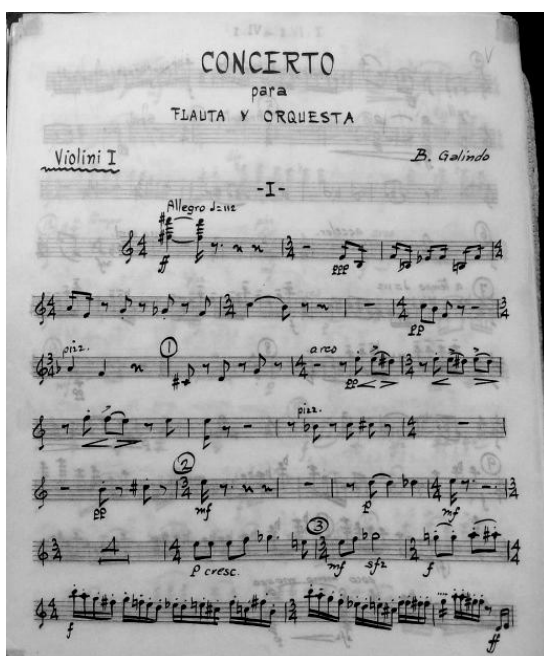 CONCERTO
para
FLAUTA Y ORQUESTA
Violini I
B. Galindo
-I-
Allegro ♩=112
ff
ppp
pp
pizz.
1
arco
pp
pizz.
2
pp
mf
p
mf
4
3
p cresc.
mf
sfz
f
f
ff